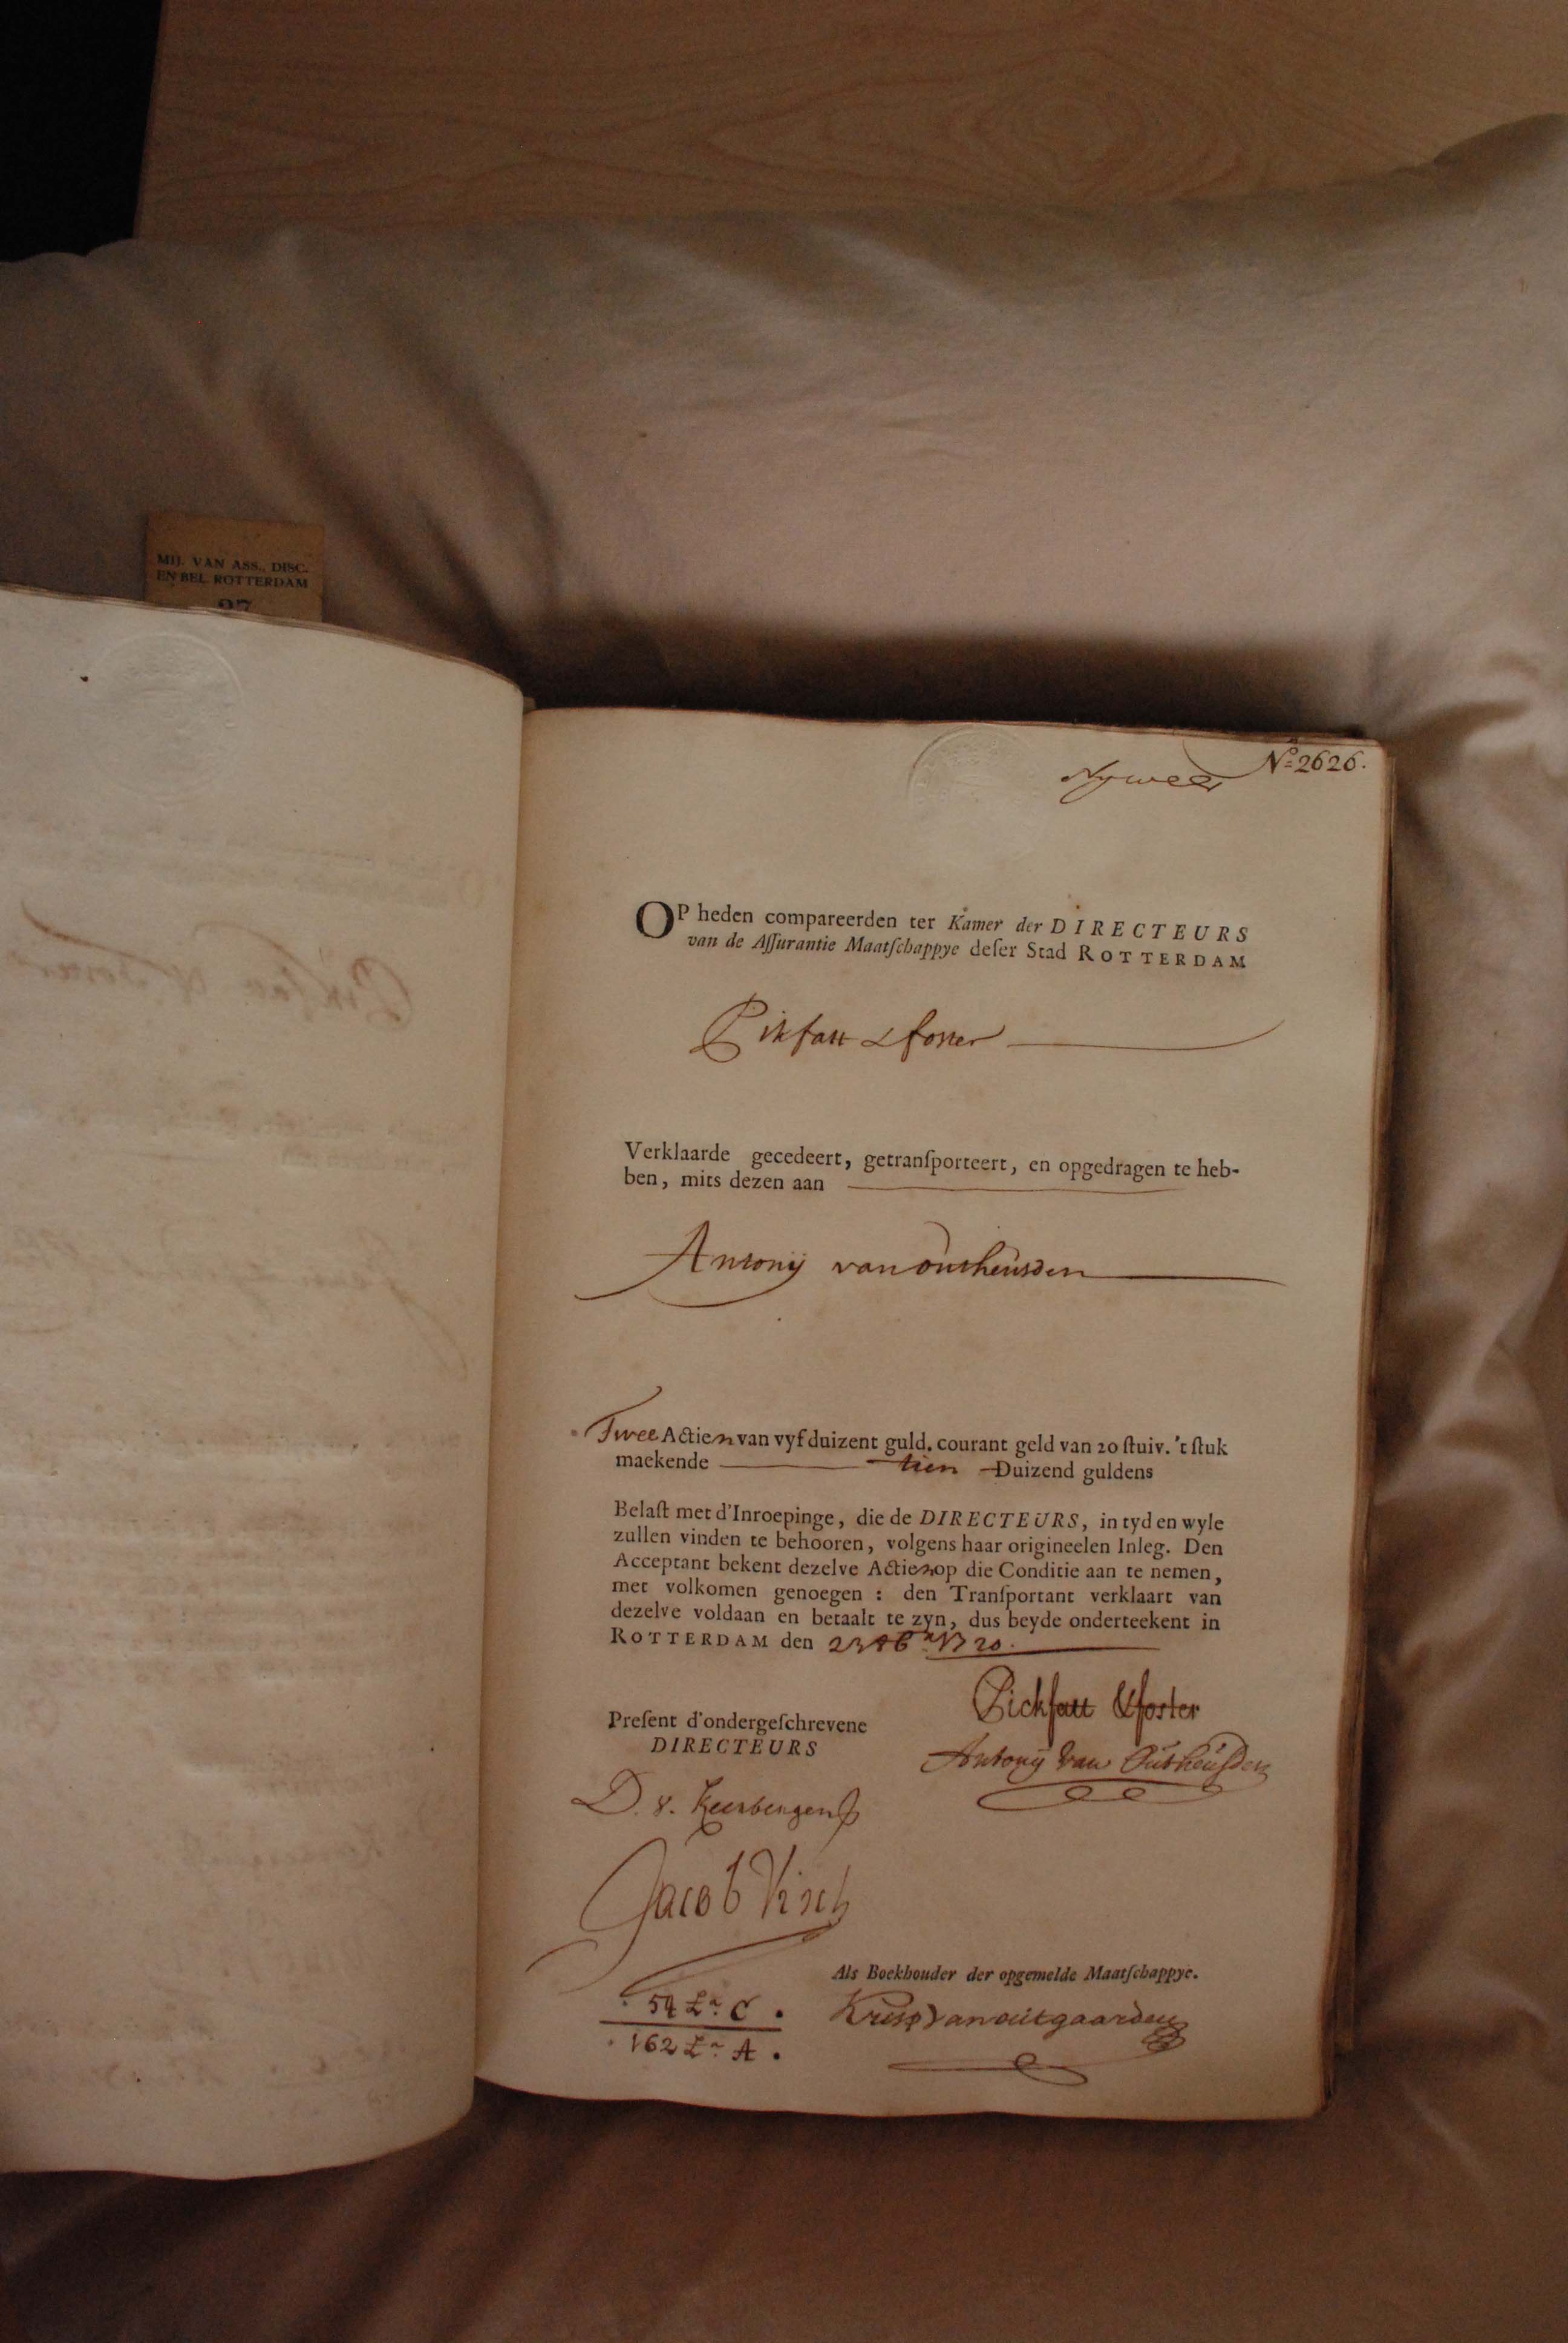 MIJ. VAN ASS., DISC.
EN BEL. ROTTERDAM
37
Nº 2626.
OP heden compareerden ter Kamer der DIRECTEURS
van de Aſſurantie Maatſchappye deſer Stad ROTTERDAM
Pikfatt & foster
Verklaarde gecedeert, getranſporteert, en opgedragen te heb-
ben, mits dezen aan
Antonij van outheusden
Twee Actien van vyf duizent guld. courant geld van 20 ſtuiv. 't ſtuk
maekende tien Duizend guldens
Belaſt met d'Inroepinge, die de DIRECTEURS, in tyd en wyle
zullen vinden te behooren, volgens haar origineelen Inleg. Den
Acceptant bekent dezelve Actien op die Conditie aan te nemen,
met volkomen genoegen : den Tranſportant verklaart van
dezelve voldaan en betaalt te zyn, dus beyde onderteekent in
ROTTERDAM den 1720.
Pickfatt & foster
Preſent d'ondergeſchrevene
DIRECTEURS
Antonij van Outheusden
D. v. Keerbergen
Jacob Visch
Als Boekhouder der opgemelde Maatſchappye.
54 Lᵃ C.
Krisp van outgaarden
162 Lᵃ A.